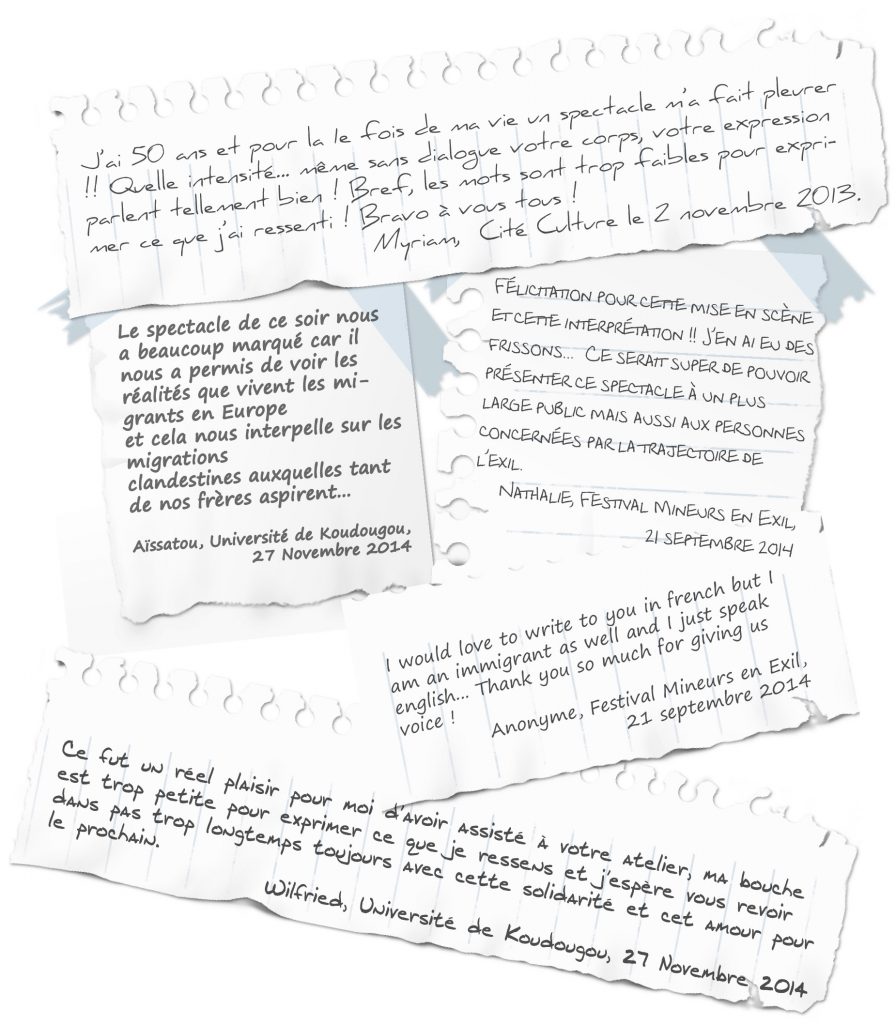 J'ai 50 ans et pour la 1e fois de ma vie un spectacle m'a fait pleurer
!! Quelle intensité... même sans dialogue votre corps, votre expression
parlent tellement bien ! Bref, les mots sont trop faibles pour expri-
mer ce que j'ai ressenti ! Bravo à vous tous !
Myriam, Cité Culture le 2 novembre 2013.
Le spectacle de ce soir nous
a beaucoup marqué car il
nous a permis de voir les
réalités que vivent les mi-
grants en Europe
et cela nous interpelle sur les
migrations
clandestines auxquelles tant
de nos frères aspirent...
Aïssatou, Université de Koudougou,
27 Novembre 2014
FÉLICITATION POUR CETTE MISE EN SCÈNE
ET CETTE INTERPRÉTATION !! J'EN AI EU DES
FRISSONS... CE SERAIT SUPER DE POUVOIR
PRÉSENTER CE SPECTACLE À UN PLUS
LARGE PUBLIC MAIS AUSSI AUX PERSONNES
CONCERNÉES PAR LA TRAJECTOIRE DE
L'EXIL.
NATHALIE, FESTIVAL MINEURS EN EXIL,
21 SEPTEMBRE 2014
I would love to write to you in french but I
am an immigrant as well and I just speak
english... Thank you so much for giving us
voice !
Anonyme, Festival Mineurs en Exil,
21 septembre 2014
Ce fut un réel plaisir pour moi d'avoir assisté à votre atelier, ma bouche
est trop petite pour exprimer ce que je ressens et j'espère vous revoir
dans pas trop longtemps toujours avec cette solidarité et cet amour pour
le prochain.
Wilfried, Université de Koudougou, 27 Novembre 2014